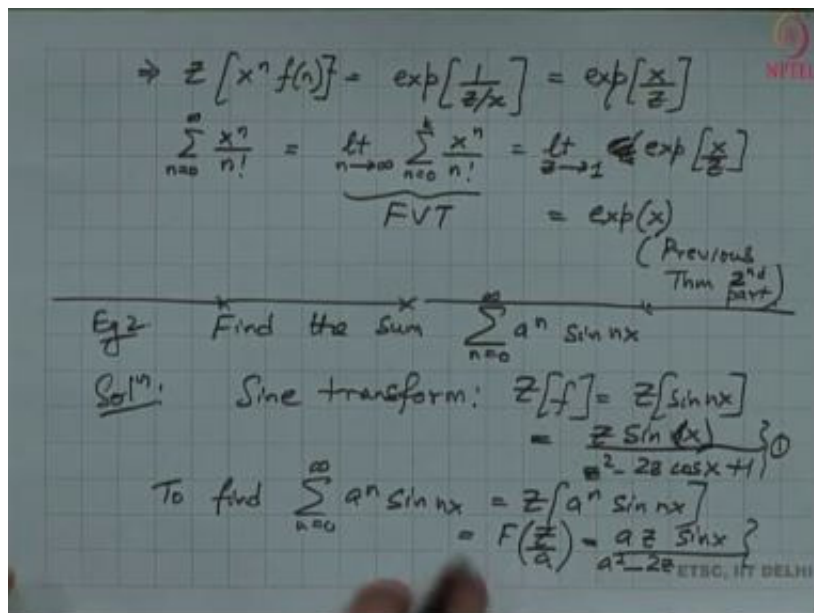 NPTEL
⇒ Z[xⁿ f(n)} = exp[1/(z/x)] = exp[x/z]
∑_{n=0}^{∞} xⁿ/n! = lt_{n→∞} ∑_{n=0}^{k} xⁿ/n! = lt_{z→1} exp[x/z]
FVT = exp(x)
(Previous
Thm 2nd part)
Eg2 Find the sum ∑_{n=0}^{∞} aⁿ sin nx
Solⁿ: Sine transform: Z[f] = Z[sin nx]
= z sin(x) / z² - 2z cosx + 1 } ①
To find ∑_{n=0}^{∞} aⁿ sin nx = Z[aⁿ sin nx]
= F(z/a) = a z sinx } / a² - 2z
ETSC, IIT DELHI